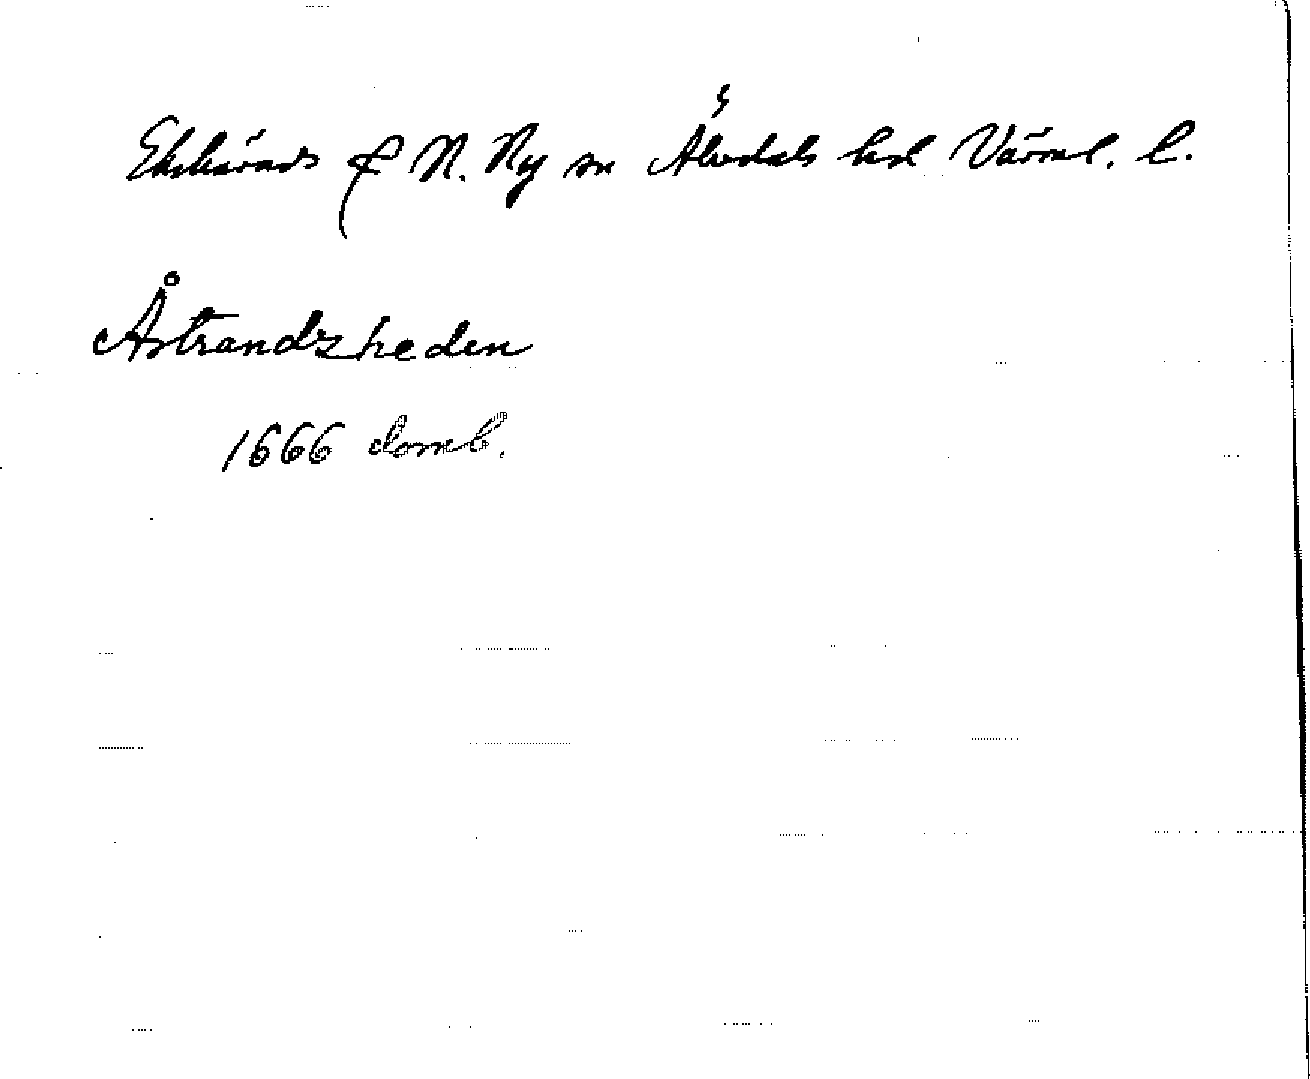 Ekshärads f N. Ny sn Älvdals hd Värml. l.
Åstrandzheden
1666 domb.